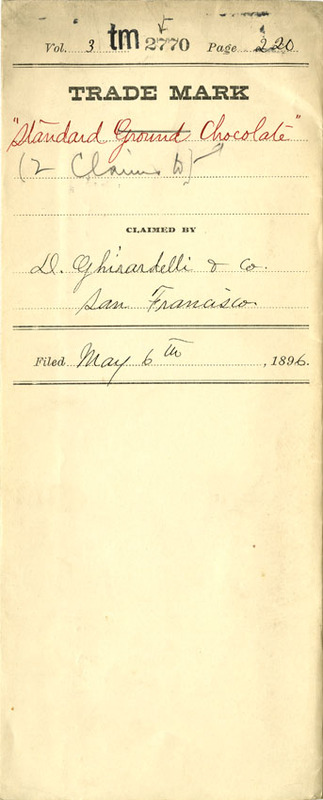 Vol. 3 tm 2770 Page 220
TRADE MARK
"Standard Ground Chocolate"
(2 Claims
CLAIMED BY
D. Ghirardelli & Co.
San Francisco.
Filed May 6th, 1896.